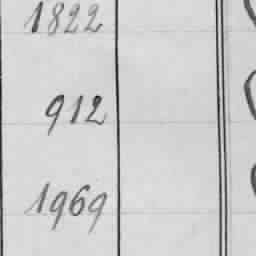 1822
912
1969